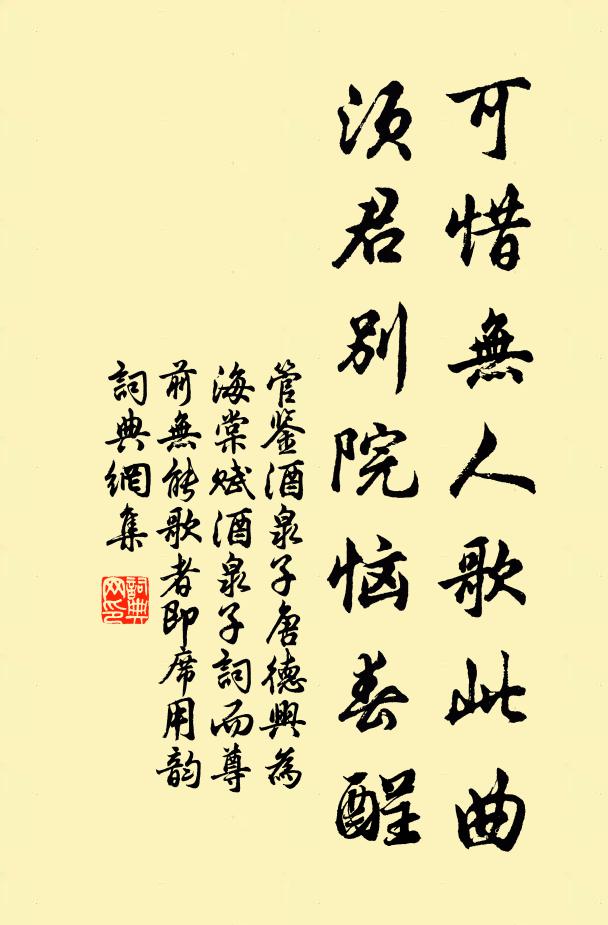 可惜無人歌此曲
須君別院惱春酲
管鉴酒泉子唐德興為
海棠賦酒泉子詞而尊
前無能歌者即席用韵
詞典網集
詞典
网印